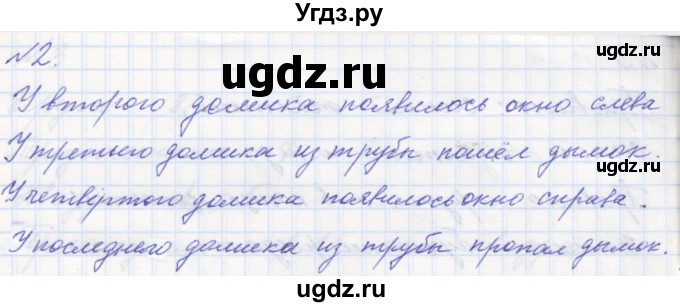 Угдз.ру
№2.
ugdz.ru
У второго домика появилось окно слева
У третьего домика из трубы пошёл дымок.
У четвёртого домика появилось окно справа.
ugdz.ru
У последнего домика из трубы пропал дымок.
ugdz.ru